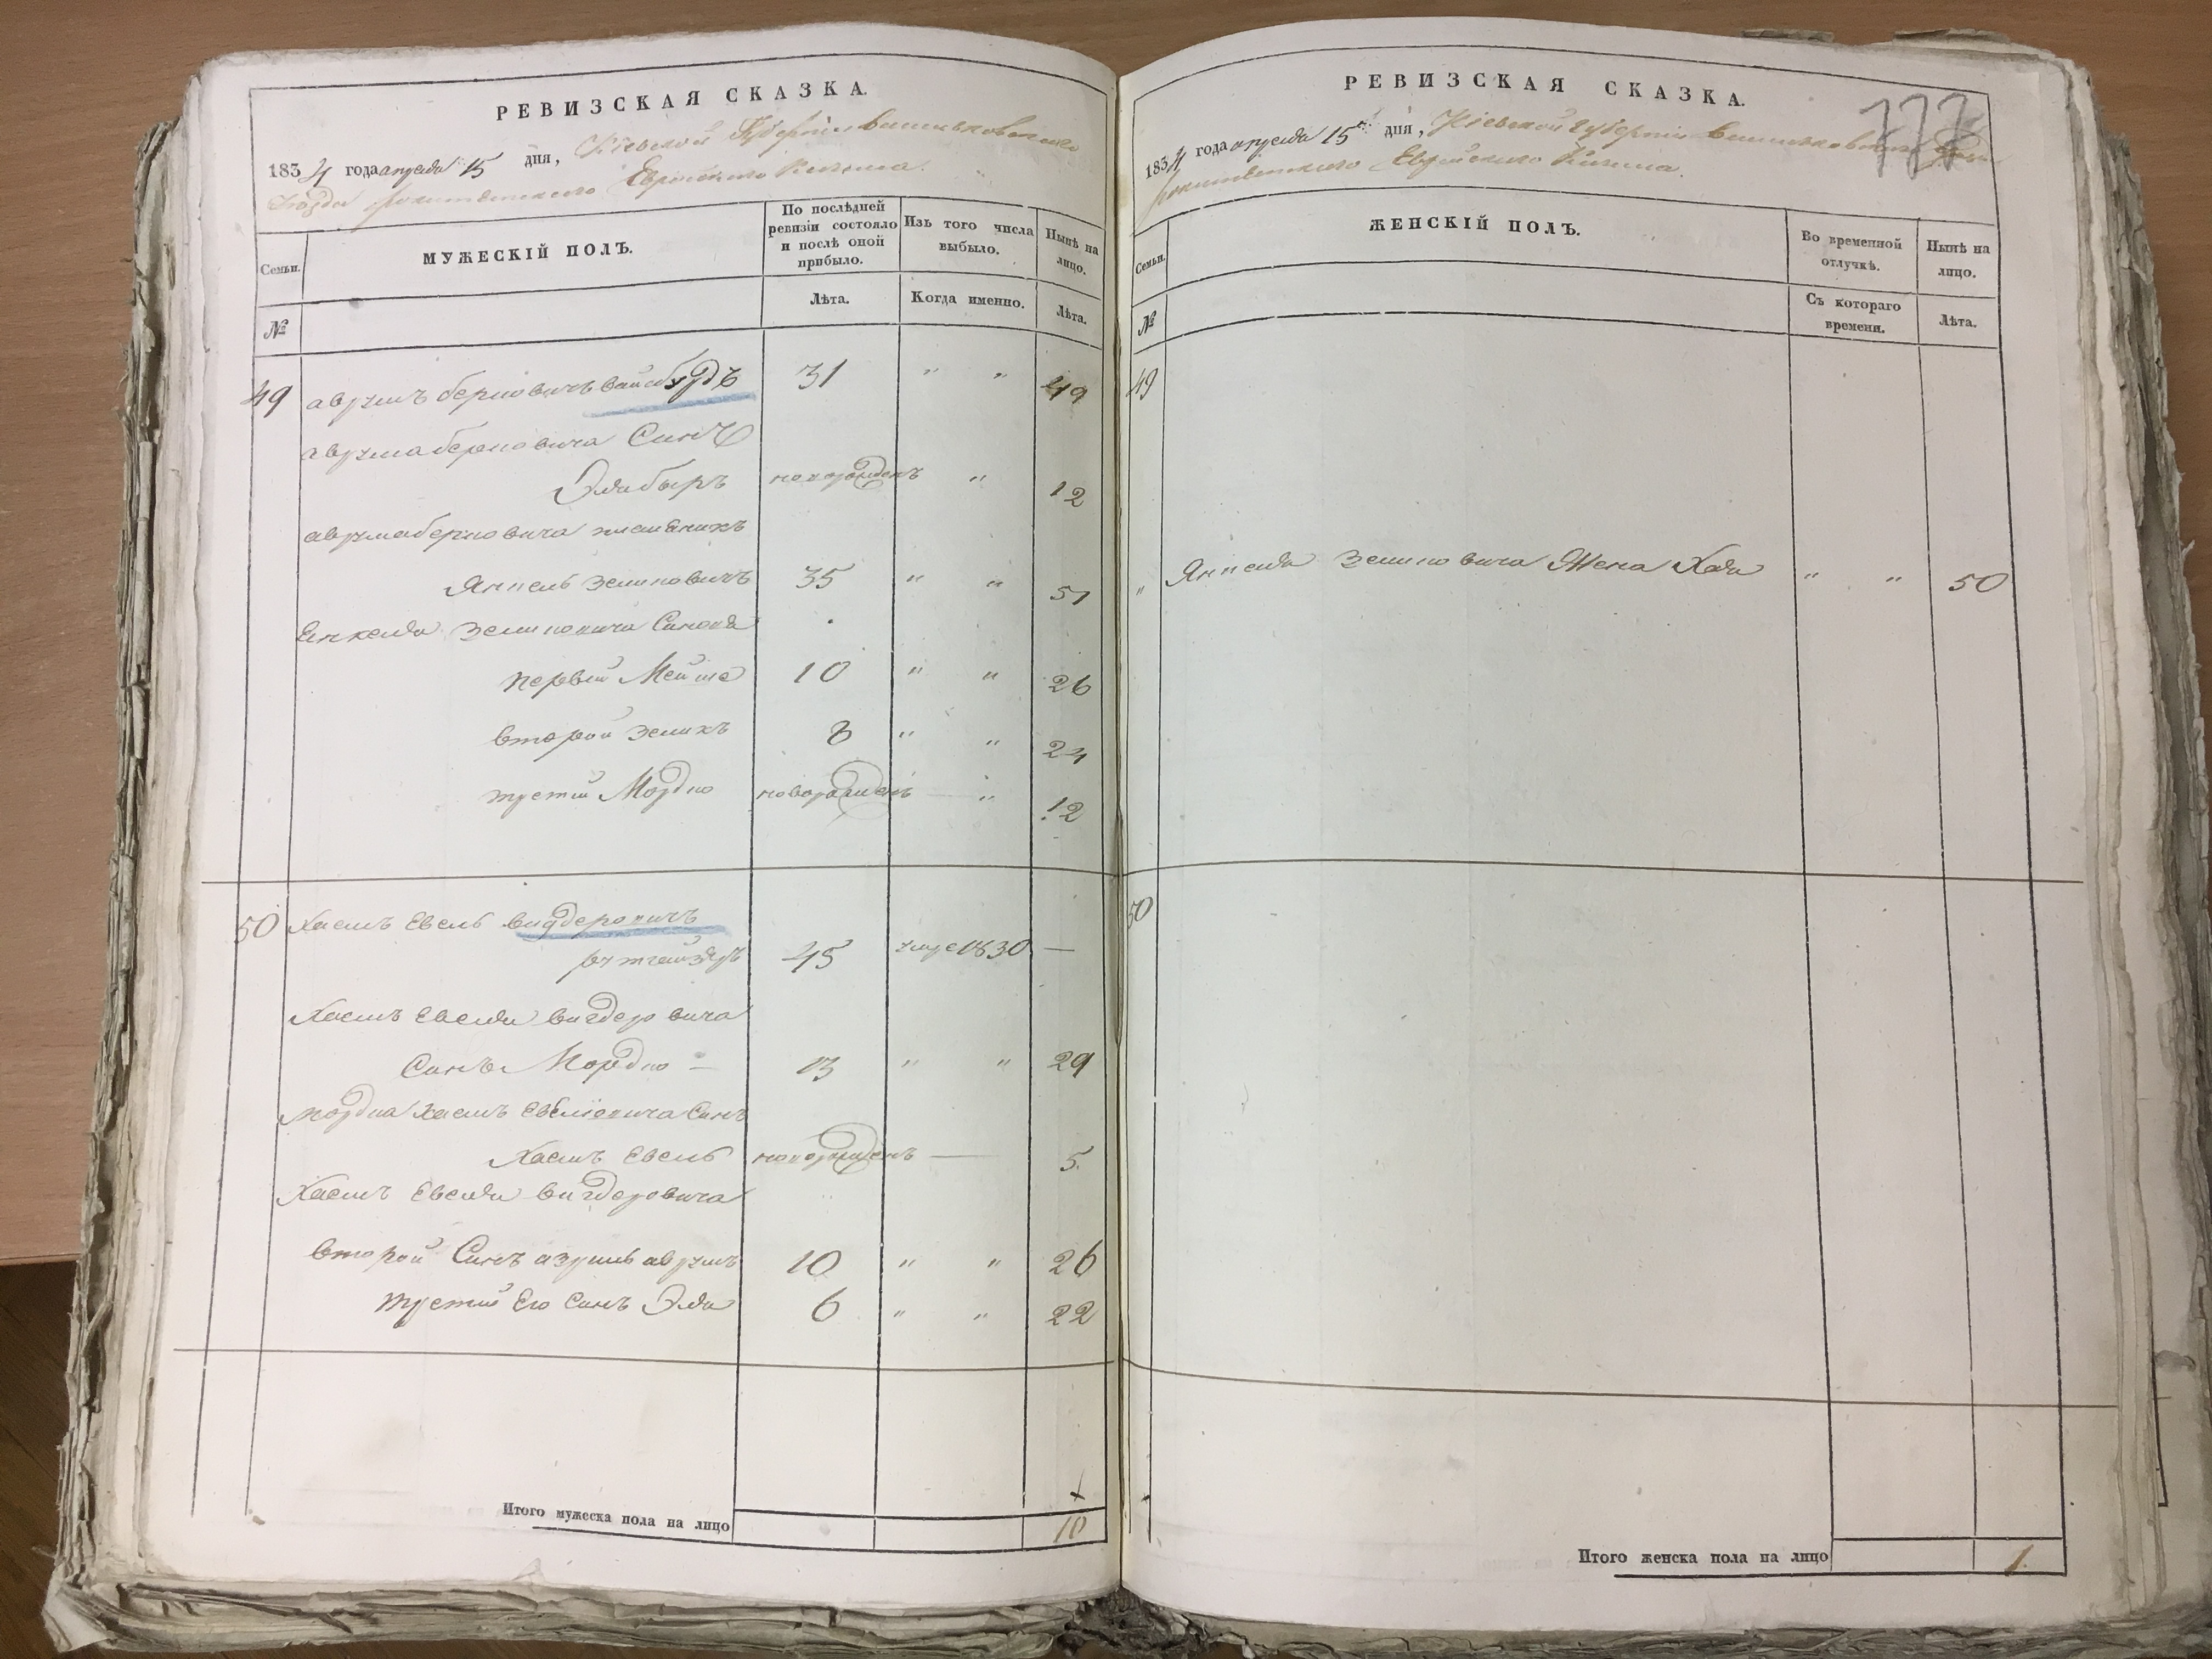 РЕВИЗСКАЯ СКАЗКА.
1834 года апреля 15 дня, Кіевской Губерніи Васильковского
Уезда рокитянского Еврейского Кагала.
Семьи.
МУЖЕСКІЙ ПОЛЪ.
По послѣдней ревизіи состояло и послѣ оной прибыло.
Изъ того числа выбыло.
Нынѣ на лицо.
№
Лѣта.
Когда именно.
Лѣта.
49 аврумъ берковичъ вайсбурдъ 31 " " 49
аврума берковича Синъ
Элябыръ новорожденъ " 12
аврума берковича племеникъ
Янкель Зеликовичъ 35 " " 51
Енкеля Зеликовича Синовя
первый Мейше 10 " " 26
вторый Зеликъ 8 " " 24
третій Мордко новорожденъ " 12
50 Хаимъ Евель вигдеровичъ
45 умре 1830 —
Хаимъ Евеля вигдеровича
Синъ Мордко — 13 " " 29
мордка Хаимъ Евеліовича Синъ
Хаимъ Евель новорожденъ — 5
Хаимъ Евеля вигдеровича
второй Синъ азриль аврумъ 10 " " 26
третій Его Синъ Эля 6 " " 22
Итого мужеска пола на лицо 10
РЕВИЗСКАЯ СКАЗКА.
177
1834 года апреля 15 дня, Кіевской Губерніи Васильковского
рокитянского Еврейского Кагала.
Семьи.
ЖЕНСКІЙ ПОЛЪ.
Во временной отлучкѣ.
Нынѣ на лицо.
№
Съ котораго времени.
Лѣта.
49
" Янкеля Зеликовича Жена Хая " " 50
50
Итого женска пола на лицо 1.